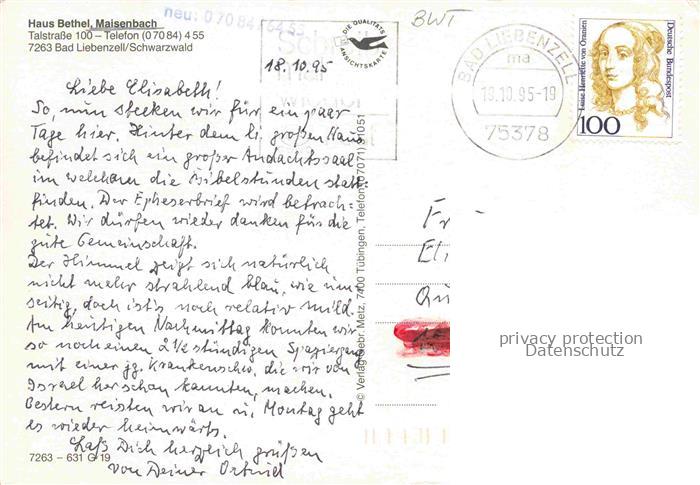 Haus Bethel, Maisenbach
Talstraße 100 – Telefon (0 70 84) 4 55
7263 Bad Liebenzell/Schwarzwald
neu: 07084/6455
DIE QUALITÄTS
ANSICHTSKARTE
BWT
BAD LIEBENZELL
ma
19.10.95-19
75378
Deutsche Bundespost
Luise Henriette von Oranien
100
18.10.95
Liebe Elisabeth!
So, nun stecken wir für ein paar
Tage hier. Hinter dem li. großen Haus
befindet sich ein großer Andachtssaal
im welchem die Bibelstunden statt-
finden. Der Epheserbrief wird betrach-
tet. Wir dürfen wieder danken für die
gute Gemeinschaft.
Der Himmel zeigt sich natürlich
nicht mehr strahlend blau, wie
seitig, doch ist's noch relativ mild.
Am heutigen Nachmittag konnten wir
so noch einen 2½ stündigen Spaziergang
mit einer jg. Krankenschw., die wir von
Israel her schon kannten, machen.
Gestern reisten wir an u. Montag geht
es wieder heimwärts.
Laß Dich herzlich grüßen
von Deiner Ortrud
7263 – 631 G 19
© Verlag Gebr. Metz, 7400 Tübingen, Telefon (07071) 31051
Fr
Eli
Qu
privacy protection
Datenschutz